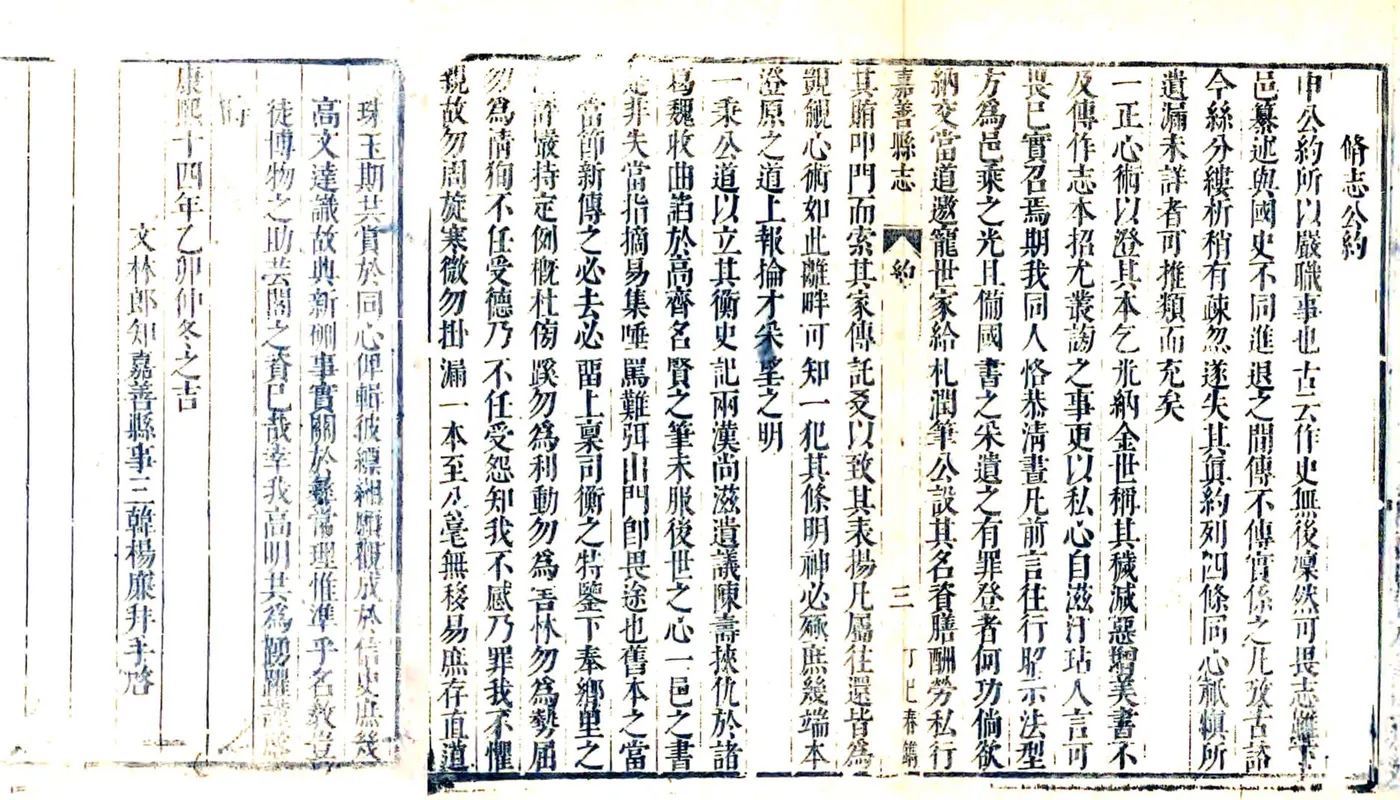 脩志公約
申公約所以嚴職事也古云作史無後凜然可畏志雖
邑纂述與國史不同進退之間傳不傳實係之凡攷古詮
今絲分縷析稍有疎忽遂失其眞約列四條同心祗愼所
遺漏未詳者可推類而充矣
一正心術以澄其本乞米納金世稱其穢減惡增美書不
及傳作志本招尤叢謗之事更以私心自滋汙玷人言可
畏已實召焉期我同人恪恭淸晝凡前言往行昭示法型
方爲邑乘之光且備國書之采遺之有罪登者何功倘欲
納交當道邀寵世家給札潤筆公設其名資膳酬勞私行
其賄叩門而索其家傳託爻以致其表揚凡屬往還皆爲
覬覦心術如此離畔可知一犯其條明神必殛庶幾端本
澄原之道上報掄才采望之明
一秉公道以立其衡史記兩漢尚滋遺議陳壽挾仇於諸
葛魏收曲諂於高齊名賢之筆未服後世之心一邑之書
是非失當指摘易集唾罵難弭出門卽畏途也舊本之當
當節新傳之必去必留上稟司衡之特鑒下奉鄉里之
評嚴持定例槪杜傍蹊勿爲利動勿爲吾林勿爲勢屈
勿爲情狥不任受德乃不任受怨知我不感乃罪我不懼
親故勿周旋寒微勿掛漏一本至公毫無移易庶存直道
嘉善縣志
約
三
珠玉期共賞於同心俾輯彼縹緗願觀成於信史庶幾
高文達識故典新硎事實關於彝常理惟準乎名敎豈
徒博物之助芸閣之資已哉幸我高明共爲踴躍謹
康熙十四年乙卯仲冬之吉
文林郎知嘉善縣事三韓楊廉井手啓